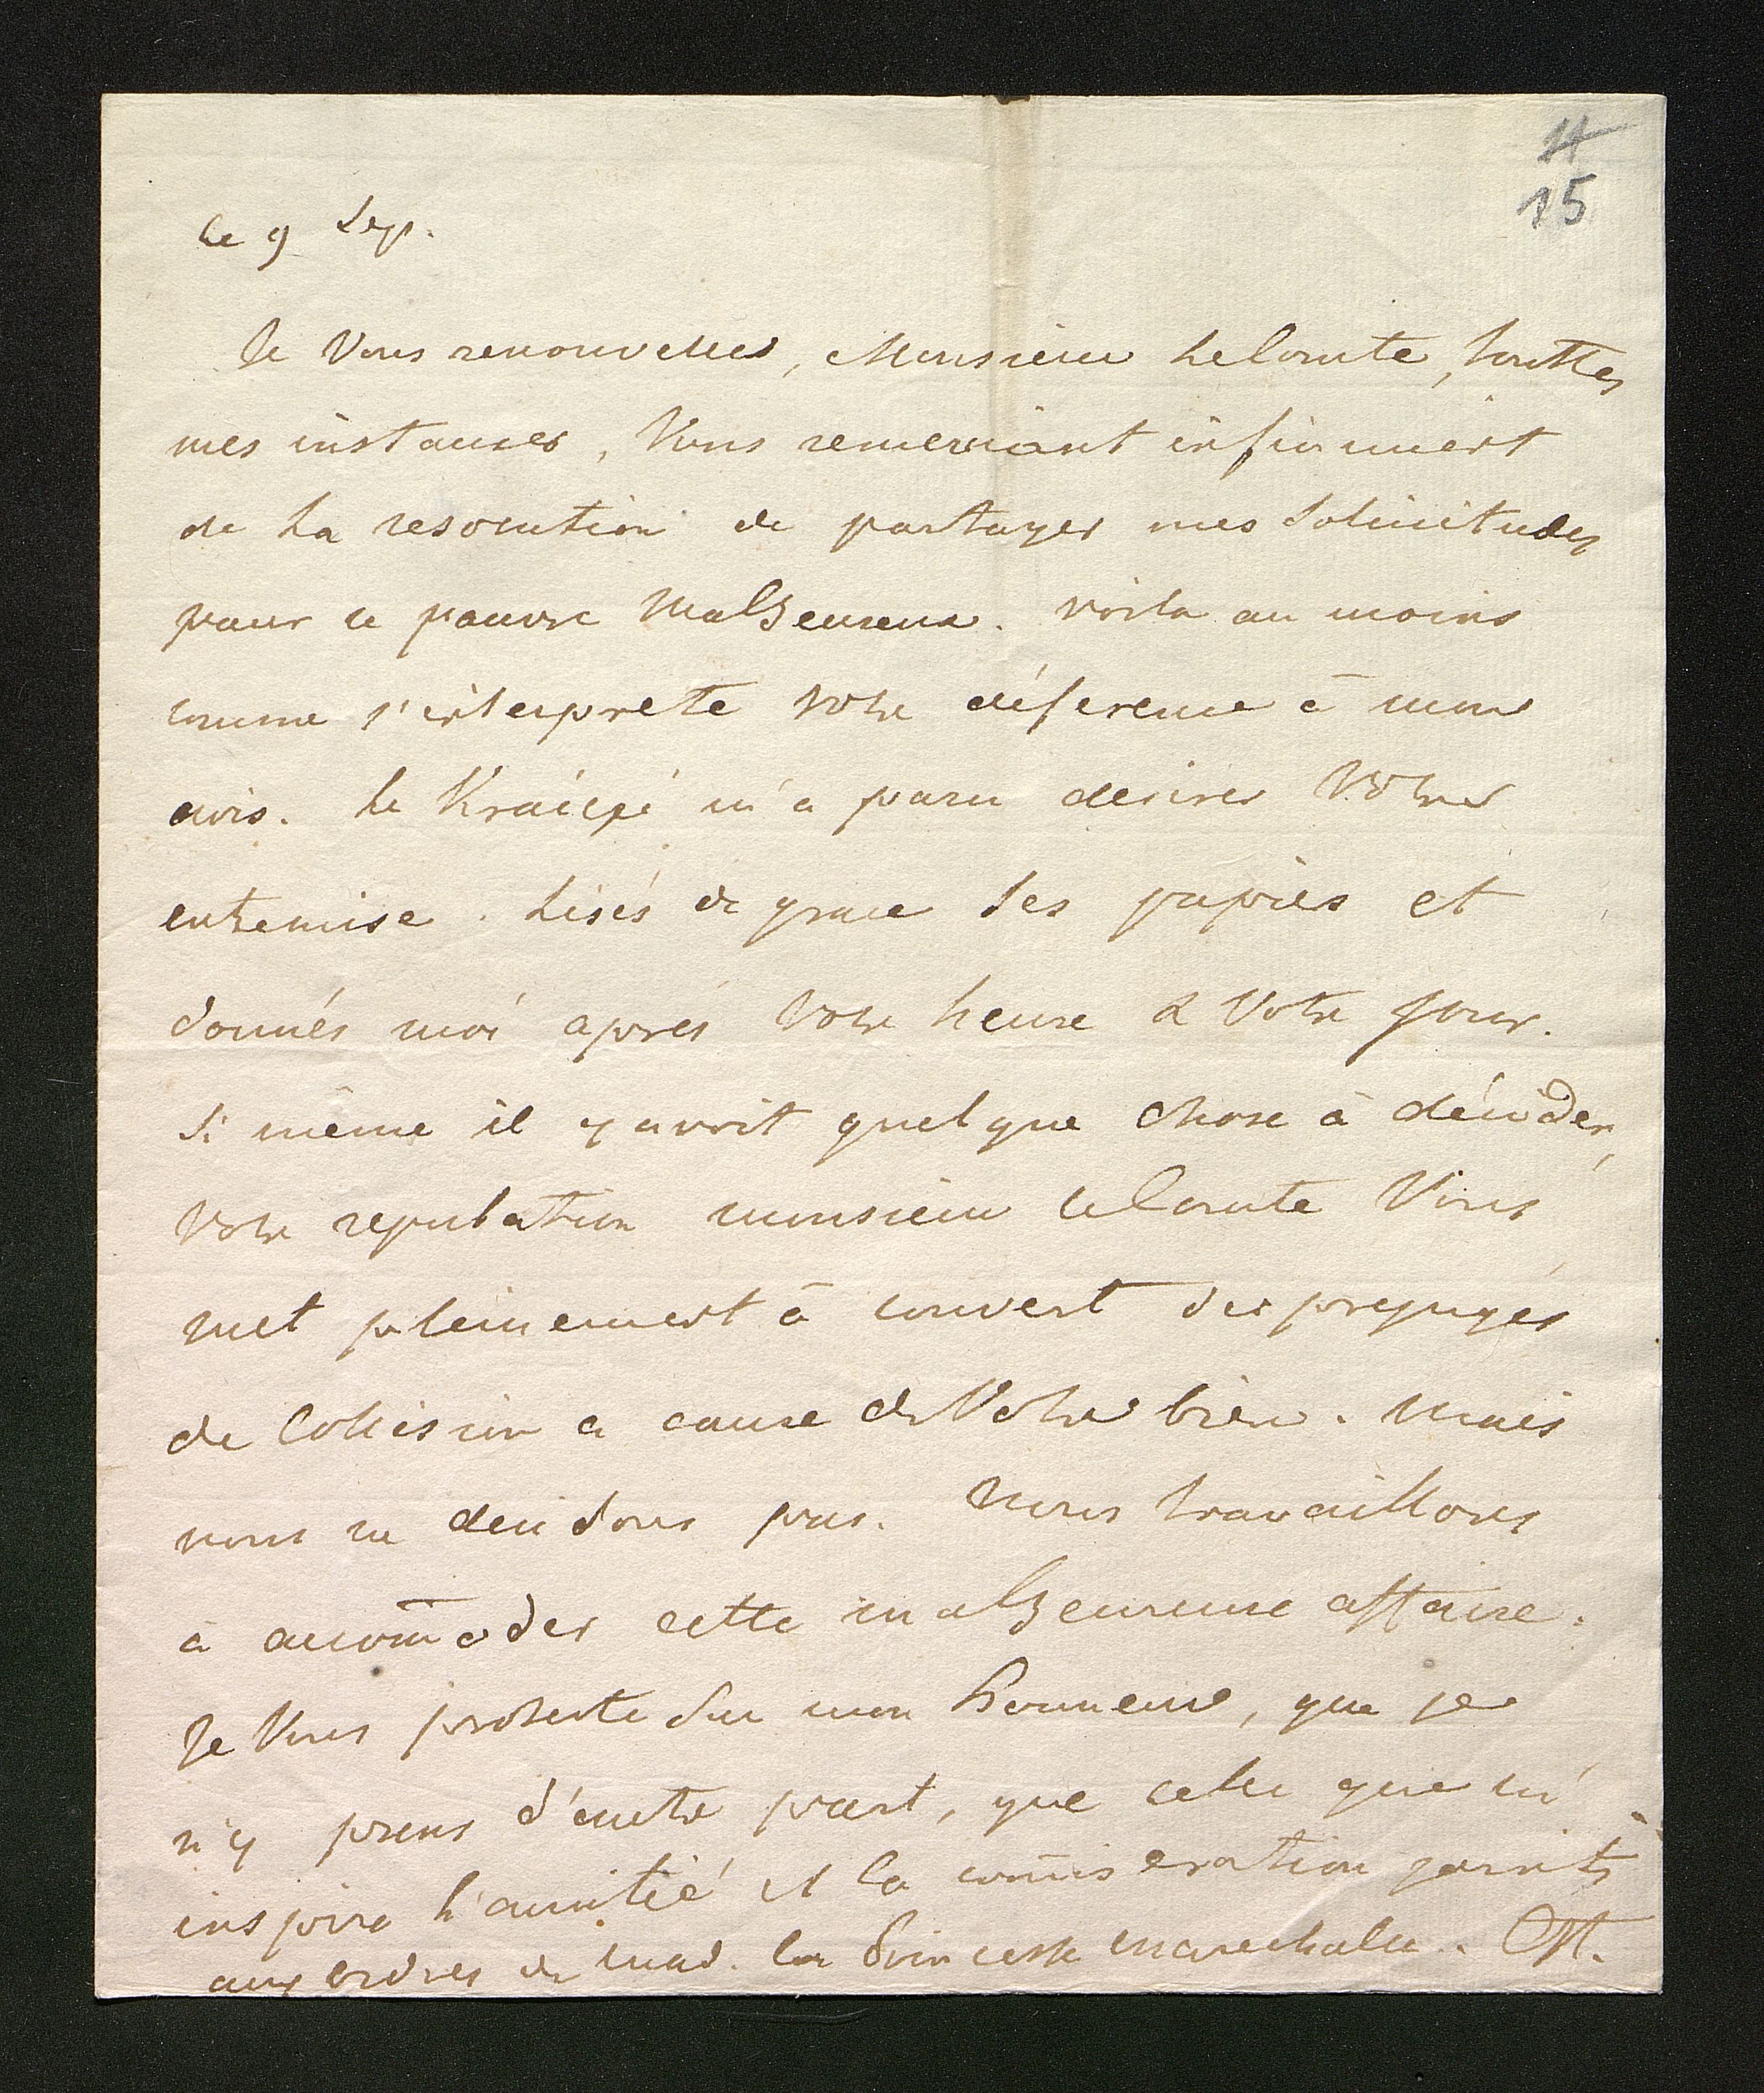 14
15
le 9 Sep.
Je Vous renouvelles, Monsieur le Comte, touttes
mes instances, Vous remerciant infiniment
de la resolution de partager mes solicitudes
pour ce pauvre malheureux. voila au moins
comme j'interprete votre déference à mon
avis. le m'a paru desirer Votre
entremise. Lisés de grace ses papiers et
donnés moi aprés votre heure & Votre jour.
Si même il y avoit quelque chose à décider,
Votre reputation monsieur le Comte Vous
met pleinement à couvert des prejugés
de Collision a cause de Votre bien. mais
nous ne decidons pas. Nous travaillons
à accom̄oder cette malheureuse affaire.
Je Vous proteste sur mon honneur, que je
n'y prens d'autre part, que celle que m'
inspire l'amitié et la com̄iseration joints
aux ordres de Mad. la Princesse marechale.